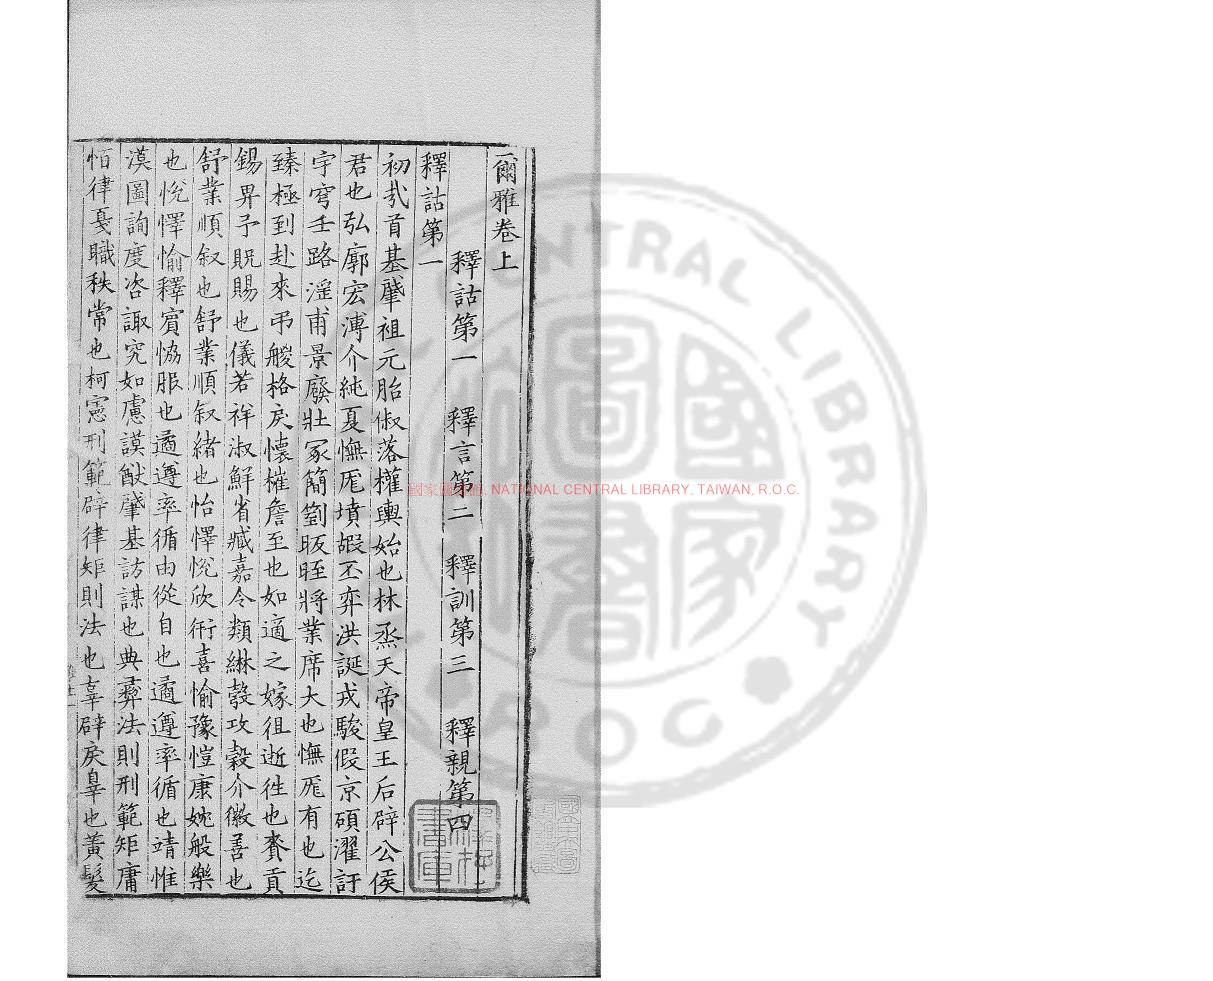 爾雅卷上
釋詁第一 釋言第二 釋訓第三 釋親第四
釋詁第一
初哉首基肇祖元胎俶落權輿始也林烝天帝皇王后辟公侯
君也弘廓宏溥介純夏幠厖墳嘏丕弈洪誕戎駿假京碩濯訏
宇穹壬路淫甫景廢壯冢簡劉昄晊將業席大也幠厖有也迄
臻極到赴來弔艐格戾懷摧詹至也如適之嫁徂逝徃也賚貢
錫畀予貺賜也儀若祥淑鮮省臧嘉令類綝彀攻榖介徽善也
舒業順叙也舒業順叙緒也怡懌恱欣衎喜愉豫愷康妉般樂
也恱懌愉釋賔恊服也遹遵率循由從自也遹遵率循也靖惟
漠圖詢度咨諏究如慮謨猷肇基訪謀也典彝法則刑範矩庸
恒律戛職秩常也柯憲刑範辟律矩則法也辜辟戾辠也黃髮
國家圖書館, NATIONAL CENTRAL LIBRARY, TAIWAN, R.O.C.
CENTRAL LIBRARY
ROC